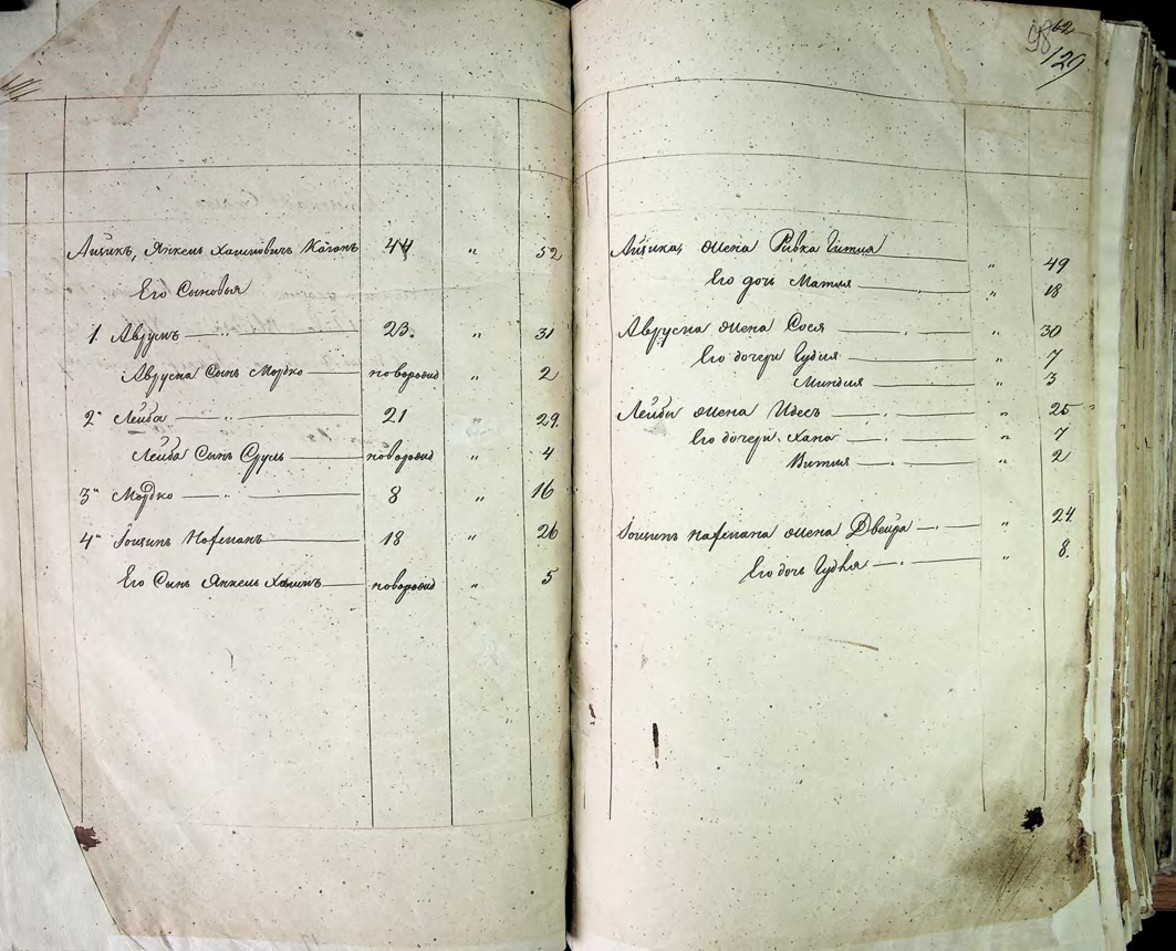 98 62
129
Айзикъ, Янкель Хаимовичъ Каганъ 44 " 52
Его Сыновья
1. Аврумъ 23. " 31
Аврума Сынъ Мордко новорожд " 2
2" Лейба " 21 " 29.
Лейба Сынъ Сруль новорожд " 4
3" Мордко " 8 " 16
4" 18 " 26
Его Сынъ Янкель Хаимъ новорожд " 5
Айзика, жена Ривка Гитля " 49
Его дочь Матля " 18
Аврума жена Сося " 30
Его дочери Гудля " 7
Миндля " 3
Лейбы жена Идесъ " 25
Его дочери Хана " 7
Витля " 2
жена Двейра " 24
Его дочь " 8.